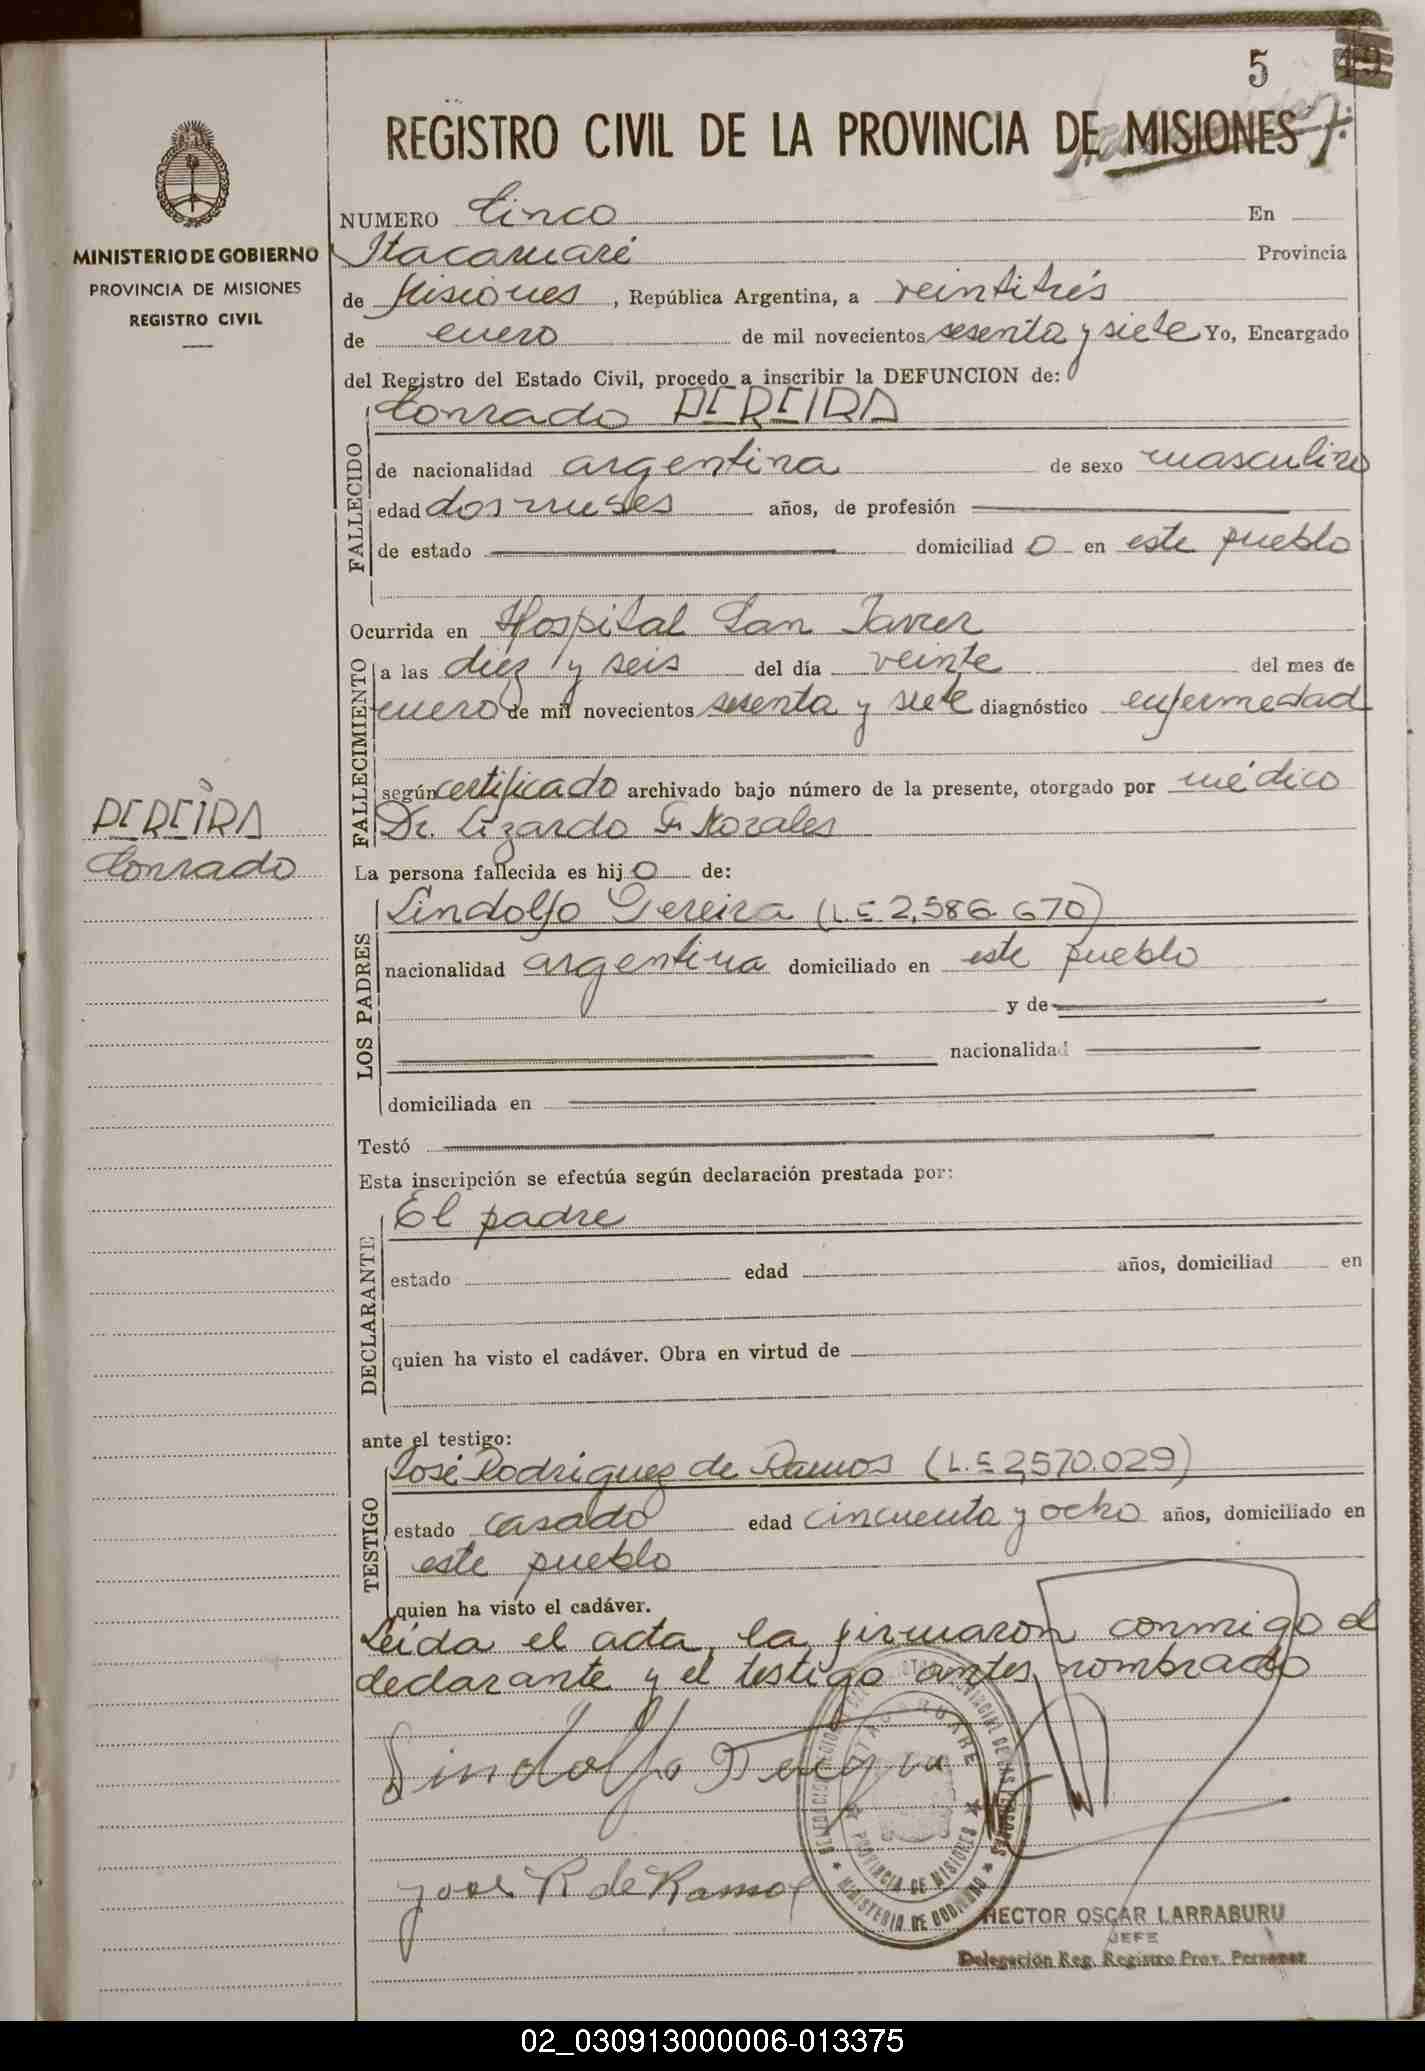 5
REGISTRO CIVIL DE LA PROVINCIA DE MISIONES
MINISTERIO DE GOBIERNO
PROVINCIA DE MISIONES
REGISTRO CIVIL
NUMERO Cinco En
Itacaruaré Provincia
de Misiones, República Argentina, a veintitrés
de enero de mil novecientos sesenta y siete Yo, Encargado
del Registro del Estado Civil, procedo a inscribir la DEFUNCION de:
Conrado PEREIRA
FALLECIDO
de nacionalidad argentina de sexo masculino
edad dos meses años, de profesión
de estado domiciliado en este pueblo
Ocurrida en Hospital San Javier
FALLECIMIENTO
a las diez y seis del día veinte del mes de
enero de mil novecientos sesenta y siete diagnóstico enfermedad
según certificado archivado bajo número de la presente, otorgado por médico
Dr. Lizardo F. Morales
PEREIRA
Conrado
La persona fallecida es hijo de:
LOS PADRES
Lindolfo Pereira (L.E 2,586.670)
nacionalidad argentina domiciliado en este pueblo
y de
nacionalidad
domiciliada en
Testó
Esta inscripción se efectúa según declaración prestada por:
DECLARANTE
El padre
estado edad años, domiciliad en
quien ha visto el cadáver. Obra en virtud de
ante el testigo:
TESTIGO
José Rodriguez de Ramos (L.E 2,570.029)
estado casado edad cincuenta y ocho años, domiciliado en
este pueblo
quien ha visto el cadáver.
Leída el acta, la firmaron conmigo el
declarante y el testigo antes nombrado
Lindolfo Pereira
ITACARUARE
PROVINCIA DE MISIONES
MINISTERIO DE GOBIERNO
José R de Ramos
HECTOR OSCAR LARRABURU
JEFE
Delegación Reg. Registro Prov. Personas
02_030913000006-013375